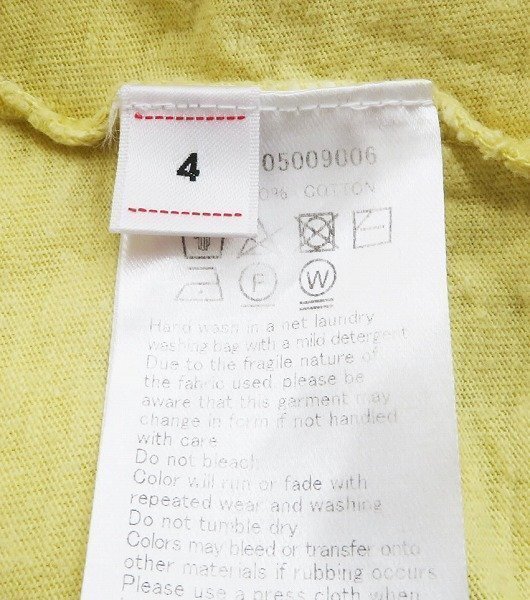 4
05009006
0% COTTON
F
W
Hand wash in a net laundry
washing bag with a mild detergent
Due to the fragile nature of
the fabric used, please be
aware that this garment may
change in form if not handled
with care.
Do not bleach.
Color will run or fade with
repeated wear and washing
Do not tumble dry.
Colors may bleed or transfer onto
other materials if rubbing occurs
Please use a press cloth when